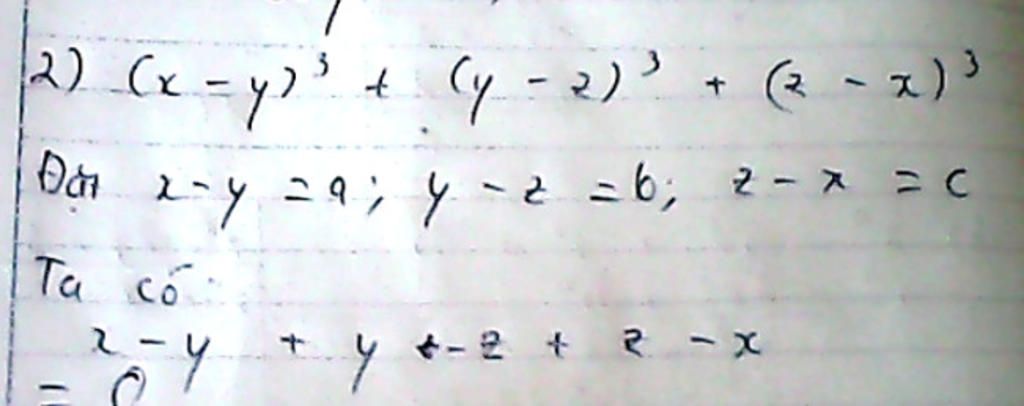 2) (x - y)³ + (y - z)³ + (z - x)³
Đặt x - y = a; y - z = b; z - x = c
Ta có
x - y + y - z + z - x
= 0